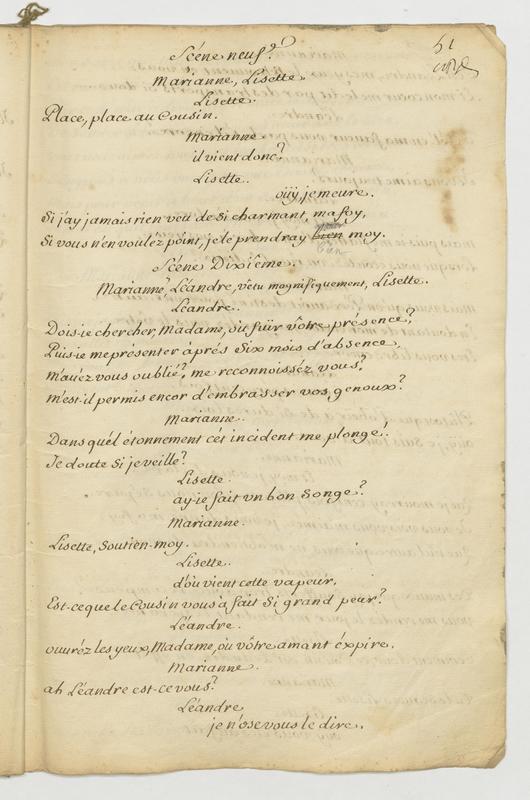 51
Scéne neuf?
Marianne, Lisette.
Lisette.
Place, place au Cousin.
Marianne
il vient donc?
Lisette.
oüy, je meure.
Si j'ay jamais rien veu de si charmant, ma foy,
Si vous n'en voulez point, je le prendray bien moy.
bien
Scéne Dixiême.
Marianne, Léandre, vêtu magnifiquement, Lisette.
Léandre.
Dois-ie chercher, Madame, où fuïr vôtre présence?
Puis-ie me présenter àprés Six mois d'absence,
m'auez vous oublié?, me reconnoisséz vous?
m'est-il permis encor d'embrasser vos genoux?
Marianne.
Dans quél étonnement cét incident me plonge!
Je doute Si je veille?
Lisette.
ay-ie fait vn bon Songe?
Marianne.
Lisette, Soutien-moy.
Lisette.
d'où vient cette vapeur,
Est-ce que le Cousin vous à fait Si grand peur?
Léandre.
ouuréz les yeux, Madame, où vôtre amant éxpire.
Marianne.
ah Léandre est-ce vous?
Léandre
je n'ose vous le dire.